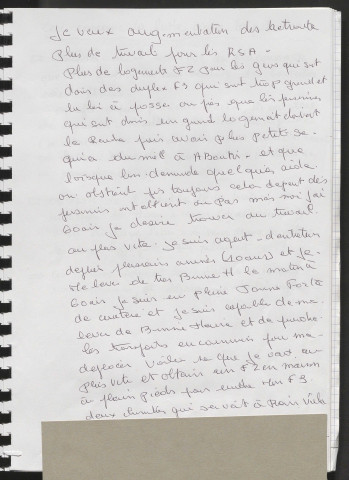 Je veux augmentation des retraites
Plus de travail pour les RSA -
Plus de logements F2 pour les gens qui sont
dans des duplex F3 qui sont trop grand et
la loi à passé au près que les personnes
qui sont dans un grand logement doivent
le rendre puis avoir plus petit sa
qui a du mal à Aboutir - et que
lorsque l'on demande quelques aide
on obtient pas toujours celon depart des
personnes ont obtient ou Pas moi j'ai
60 ans je desire trouver du travail
au plus vite. je suis agent d'entretien
depuis plusieurs années (20 ans) et je
me lever de très Bonne H le matin à
60 ans je suis en pleine Forme Forte
de caractère et je suis capable de me
lever de Bonne Heure et de prendre
les transports en commun pour me
deplacer voila ce que je veux au
plus vite et obtenir un F2 en maison
à plain pieds pour rendre mon F3
deux chambres qui servait à Rien Voila